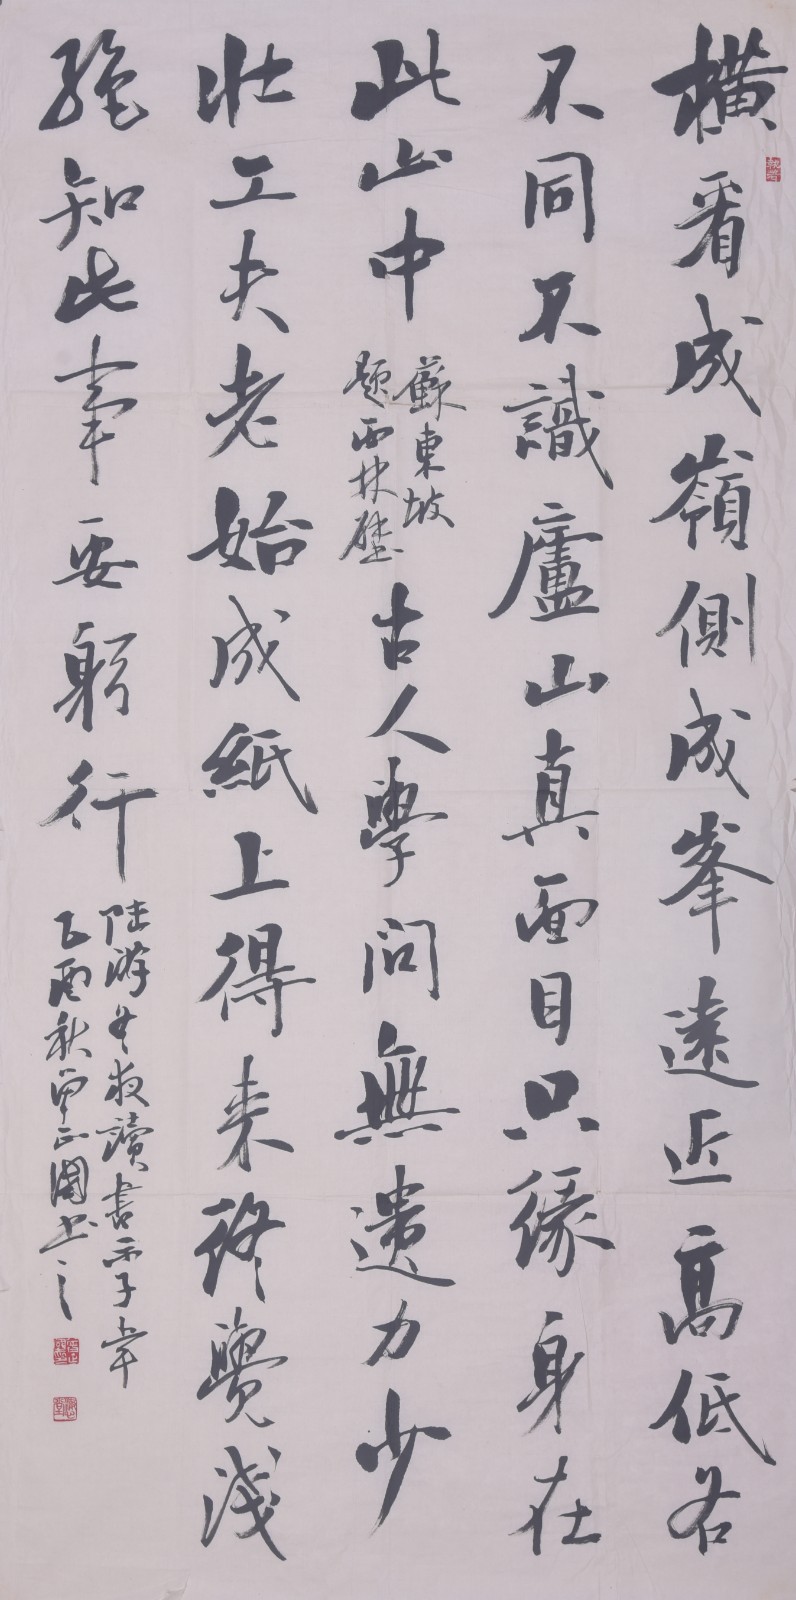 橫看成嶺側成峯遠近高低各
不同不識廬山真面目只緣身在
此山中
蘇東坡
題西林壁
古人學問無遺力少
壯工夫老始成紙上得来終覺淺
絕知此事要躬行
陸游冬夜讀書示子聿
乙酉秋正國书之